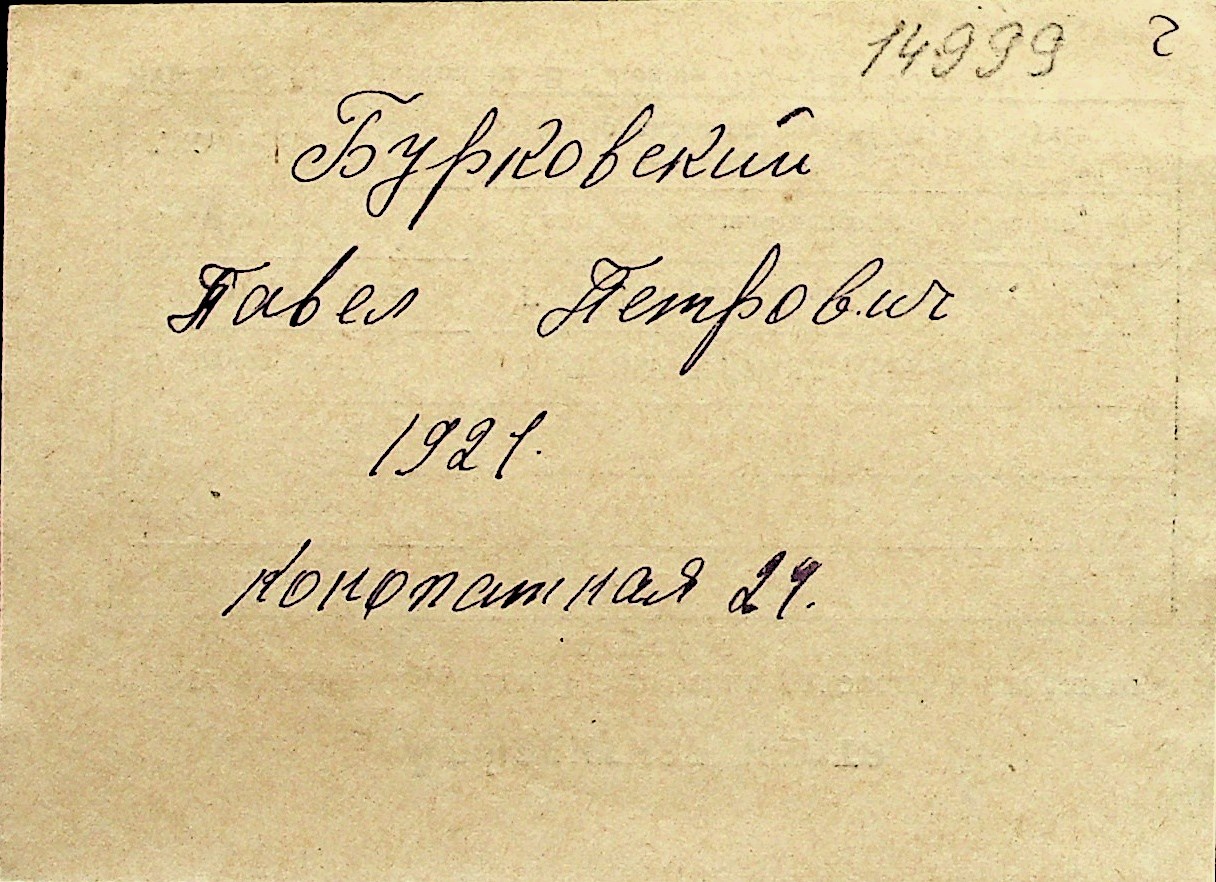 14999 2
Бурковский
Павел Петрович
1921.
Конопатная 24.